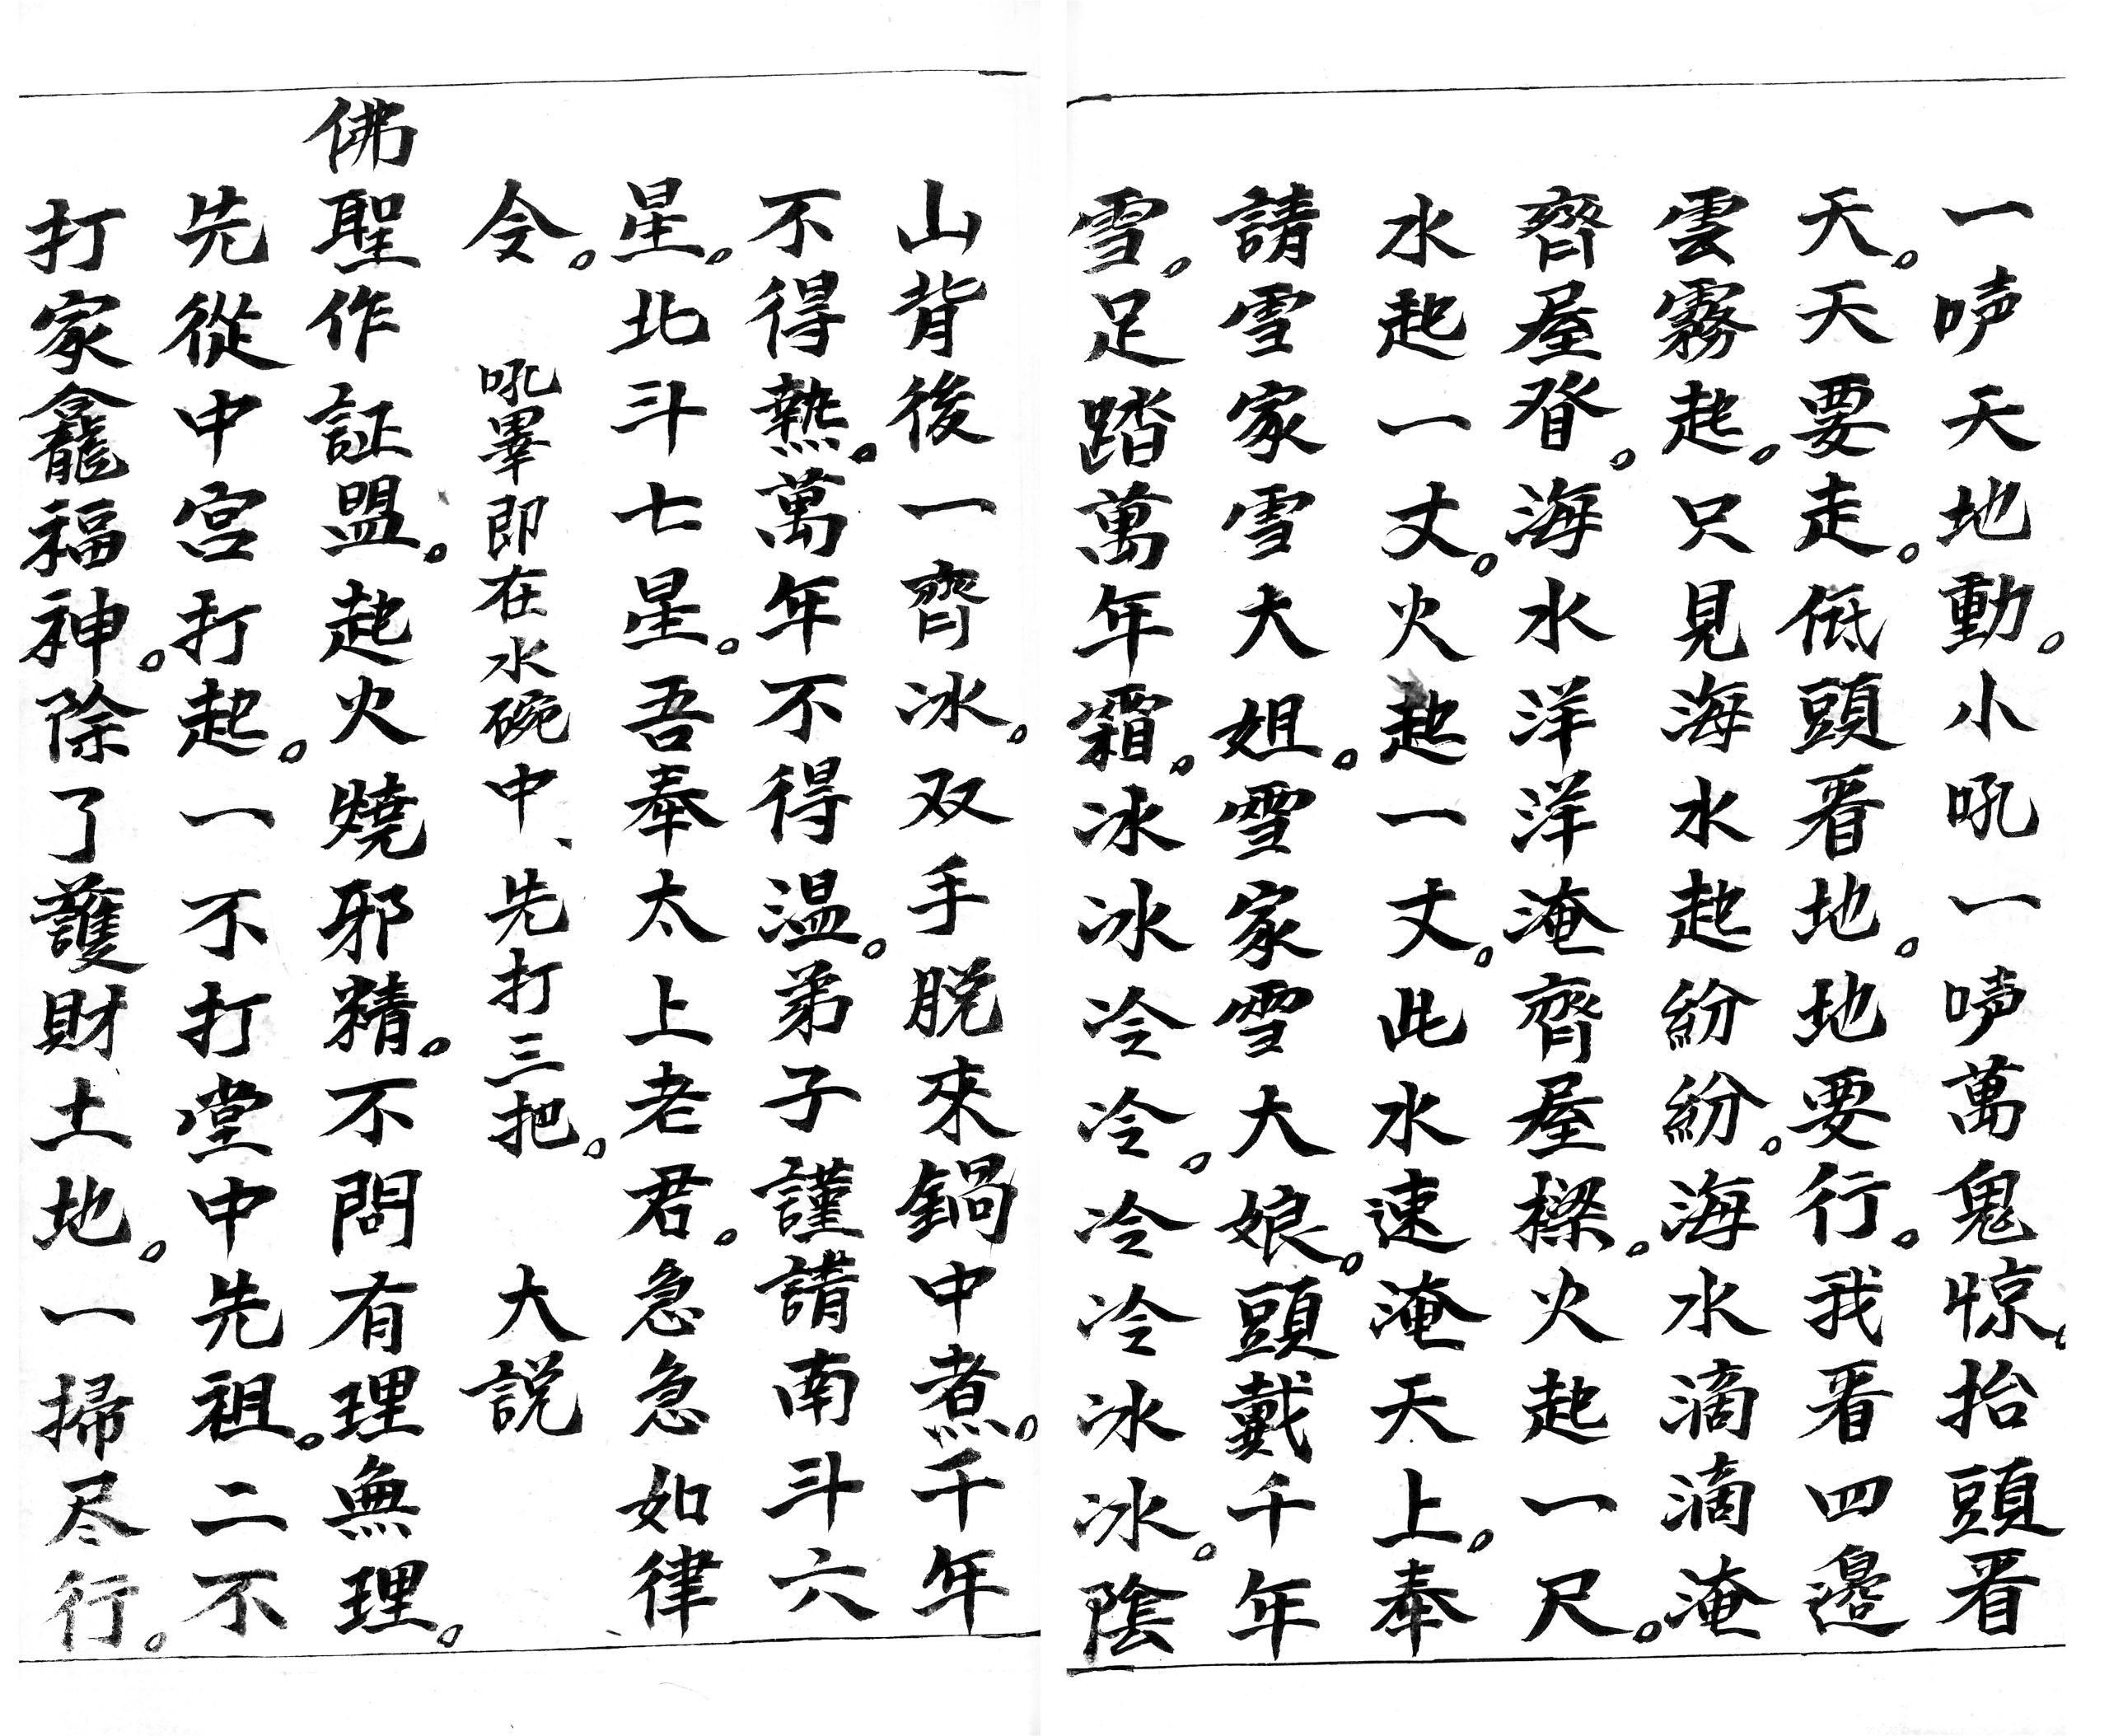 一唥天地動。小吼一唥萬鬼惊。抬頭看
天。天要走。低頭看地。地要行。我看四邊
雲霧起。只見海水起紛紛。海水滴滴淹
齊屋脊。海水洋洋淹齊屋樑。火起一尺。
水起一丈。火起一丈。此水速淹天上。奉
請雪家雪大姐。雪家雪大娘。頭戴千年
雪。足踏萬年霜。冰冰冷冷。冷冷冰冰。陰
山背後一齊冰。双手脱來鍋中煮。千年
不得熱。萬年不得温。弟子謹請南斗六
星。北斗七星。吾奉太上老君。急急如律
令。 吼畢即在水碗中、先打三把。 大説
佛聖作証盟。起火燒邪精。不問有理無理。
先從中宫打起。一不打堂中先祖。二不
打家龕福神。除了護財土地。一掃尽行。